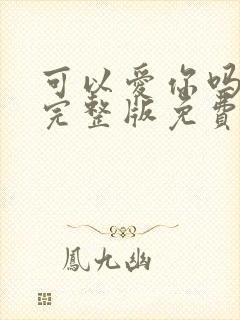 可以愛你吗
完整版免費
鳳九幽